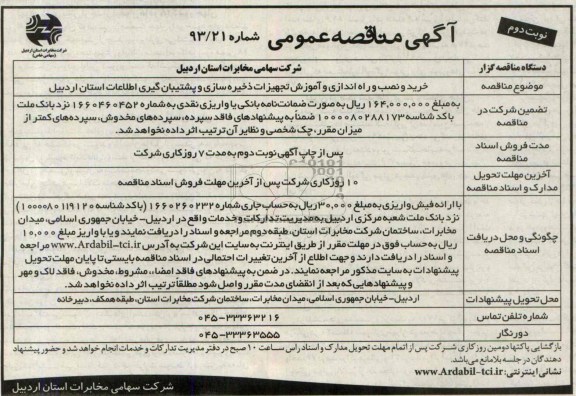 نوبت دوم
آگهی مناقصه عمومی شماره ۹۳/۲۱
شرکت مخابرات استان اردبیل
(سهامی خاص)
دستگاه مناقصه گزار
شرکت سهامی مخابرات استان اردبیل
موضوع مناقصه
خرید و نصب و راه اندازی و آموزش تجهیزات ذخیره سازی و پشتیبان گیری اطلاعات استان اردبیل
تضمین شرکت در
مناقصه
به مبلغ ۱۶۴,۰۰۰,۰۰۰ ریال به صورت ضمانت نامه بانکی یا واریزی نقدی به شماره ۱۶۶۰۴۶۰۴۵۲ نزد بانک ملت
با کد شناسه ۱۰۰۰۰۸۰۲۸۸۱۷۳ ضمناً به پیشنهادهای فاقد سپرده، سپرده های مخدوش، سپرده های کمتر از
میزان مقرر، چک شخصی و نظایر آن ترتیب اثر داده نخواهد شد.
مدت فروش اسناد
مناقصه
پس از چاپ آگهی نوبت دوم به مدت ۷ روز کاری شرکت
آخرین مهلت تحویل
مدارک و اسناد مناقصه
۱۰ روز کاری شرکت پس از آخرین مهلت فروش اسناد مناقصه
چگونگی و محل دریافت
اسناد مناقصه
با ارائه فیش واریزی به مبلغ ۳۰,۰۰۰ ریال به حساب جاری شماره ۱۶۶۰۲۶۰۲۳۲ (با کد شناسه ۱۰۰۰۰۸۰۱۱۹۱۲۰)
نزد بانک ملت شعبه مرکزی اردبیل به مدیریت تدارکات و خدمات واقع در اردبیل - خیابان جمهوری اسلامی، میدان
مخابرات، ساختمان شرکت مخابرات استان، طبقه دوم مراجعه و اسناد را دریافت نمایند و یا با واریز مبلغ ۱۰,۰۰۰
ریال به حساب فوق در مهلت مقرر از طریق اینترنت به سایت این شرکت به آدرس www.Ardabil-tci.ir مراجعه
و اسناد را دریافت دارند و جهت اطلاع از آخرین تغییرات احتمالی در اسناد مناقصه بایستی تا پایان مهلت تحویل
پیشنهادات به سایت مذکور مراجعه نمایند. در ضمن به پیشنهادهای فاقد امضاء، مشروط، مخدوش، فاقد لاک و مهر
و پیشنهادهایی که بعد از انقضای مدت مقرر واصل شود مطلقاً ترتیب اثر داده نخواهد شد.
محل تحویل پیشنهادات
اردبیل - خیابان جمهوری اسلامی، میدان مخابرات، ساختمان شرکت مخابرات استان، طبقه همکف، دبیرخانه
شماره تلفن تماس
۰۴۵-۳۳۳۶۳۲۱۶
دورنگار
۰۴۵-۳۳۳۶۳۵۵۵
بازگشایی پاکتها دومین روز کاری شرکت پس از اتمام مهلت تحویل مدارک و اسناد راس ساعت ۱۰ صبح در دفتر مدیریت تدارکات و خدمات انجام خواهد شد و حضور پیشنهاد
دهندگان در جلسه بلامانع می باشد.
نشانی اینترنتی: www.Ardabil-tci.ir
شرکت سهامی مخابرات استان اردبیل